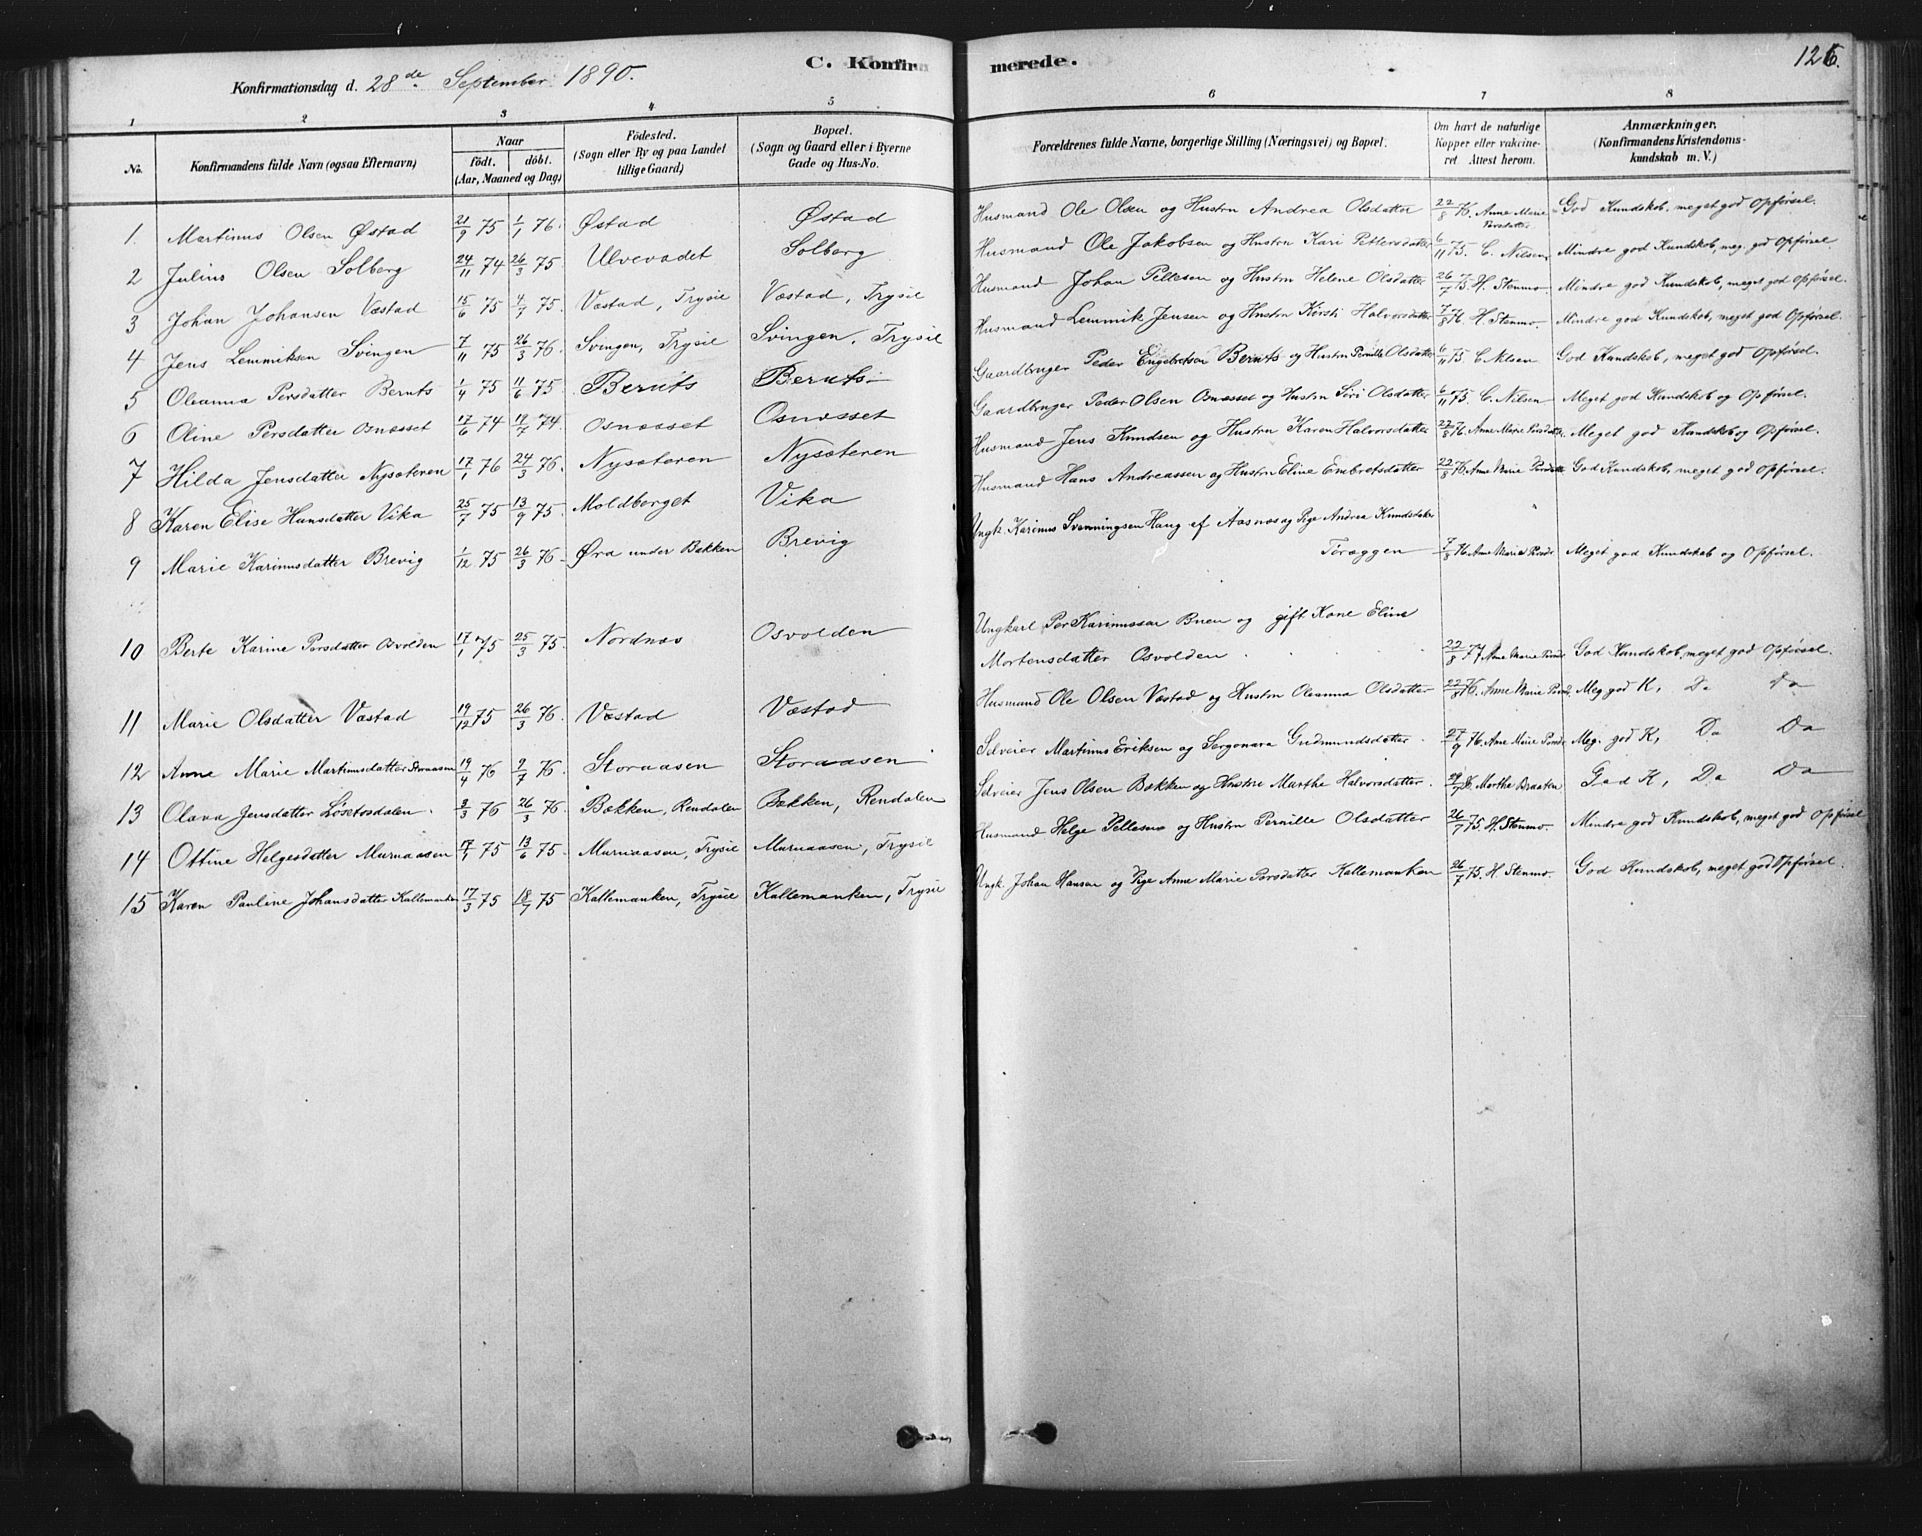 C. Konfirmerede.
126.
Konfirmationsdag d. 28de September 1890.
1 2 3 4 5 6 7 8
No. Konfirmandens fulde Navn (ogsaa Efternavn) Naar født. døbt. (Aar, Maaned og Dag) Fødested. (Sogn eller By og paa Landet tillige Gaard) Bopæl. (Sogn og Gaard eller i Byerne Gade og Hus-No. Forældrenes fulde Navne, borgerlige Stilling (Næringsvei) og Bopæl. Om havt de naturlige Kopper eller vakcineret Attest herom. Anmærkninger. (Konfirmandens Kristendomskundskab m. V.)
1. Martinus Olsen Østad 21/9 75 1/1 76. Østad Østad Husmand Ole Olsen og Hustru Andrea Olsdatter 22/8 76. Anne Marie Persdatter God Kundskab, meget god Opførsel.
2 Julius Olsen Solberg 24/11 74 26/3 75 Ulvevadet Solberg Husmand Ole Jakobsen og Hustru Kari Pettersdatter 6/11 75. C. Nilsen Mindre god Kundskab, meg. god Opførsel
3 Johan Johansen Væstad 15/6 75 4/7 75. Væstad, Trysil Væstad, Trysil Husmand Johan Pellesen og Hustru Helene Olsdatter 26/7 75. H. Stenmo. Mindre god Kundskab, meget god Opførsel.
4 Jens Lemmiksen Svingen 7/11 75 26/3 76. Svingen, Trysil Svingen, Trysil Husmand Lemmik Jensen og Hustru Kirsti Halvorsdatter 7/8 76 H. Stenmo. Mindre god Kundskab, meget god Opførsel.
5 Oleanna Persdatter Bernts 1/4 75 11/6 75. Bernts Bernts Gaardbruger Peder Engebretsen Bernts og Hustru Pernille Olsdatter 6/11 75 C. Nilsen God Kundskab, meget god Opførsel.
6 Oline Persdatter Osnæsset 17/6 74 19/7 74. Osnæsset Osnæsset Gaardbruger Peder Olsen Osnæsset og Hustru Siri Olsdatter 6/11 75. C. Nilsen Meget god Kundskab og Opførsel.
7 Hilda Jensdatter Nysæteren 17/1 76 24/3 76. Nysæteren Nysæteren Husmand Jens Knudsen og Hustru Karen Halvorsdatter 22/8 76. Anne Marie Persdatter Meget god Kundskab og Opførsel.
8 Karen Elise Hansdatter Vika 25/7 75 13/9 75. Moldberget Vika Husmand Hans Andreassen og Hustru Eline Enbretsdatter 22/8 76. Anne Marie Persdatter God Kundskab, meget god Opførsel.
9 Marie Karinusdatter Brevig 1/12 75 26/3 76 Øra under Bakken Brevig Ungk. Karinus Svenningsen Haug af Aasnes og Pige Andrea Knudsdatter
Toræggen 7/8 76 Anne Marie Persdr. Meget god Kundskab og Opførsel.
10 Berte Karine Persdatter Osvolden 17/1 75 25/3 75. Nordnæs Osvolden Ungkarl Per Karinussen Buen og gift Kone Eline
Mortensdatter Osvolden 22/8 77 Anne Marie Persdr. God Kundskab, meget god Opførsel.
11 Marie Olsdatter Væstad 19/12 75 26/3 76. Væstad Væstad Husmand Ole Olsen Væstad og Hustru Oleanna Olsdatter 22/8 76. Anne Marie Persdr. Meg. god K, Do Do
12 Anne Marie Martinusdatter Storaasen 19/4 76 9/7 76. Storaasen Storaasen Selveier Martinus Eriksen og Gudmundsdatter 27/9 76. Anne Marie Persdr. Meg. god K, Do Do
13 Olava Jensdatter 3/3 76 26/3 76 Bækken, Rendalen Bækken, Rendalen Selveier Jens Olsen Bækken og Hustru Marthe Halvorsdatter. Marthe Braaten God K, Do Do
14 Ottine Helgesdatter Murnaasen 17/1 75 13/6 75. Murnaasen, Trysil Murnaasen, Trysil Husmand Helge Pellesen og Hustru Pernille Olsdatter 26/7 75. H. Stenmo. Mindre god Kundskab, meget god Opførsel
15 Karen Pauline Johansdatter Kallemanken 17/3 75 18/7 75 Kallemanken, Trysil Kallemanken, Trysil Ungk. Johan Hansen og Pige Anne Marie Persdatter Kallemanken 26/7 75. H. Stenmo. God Kundskab, meget god Opførsel.